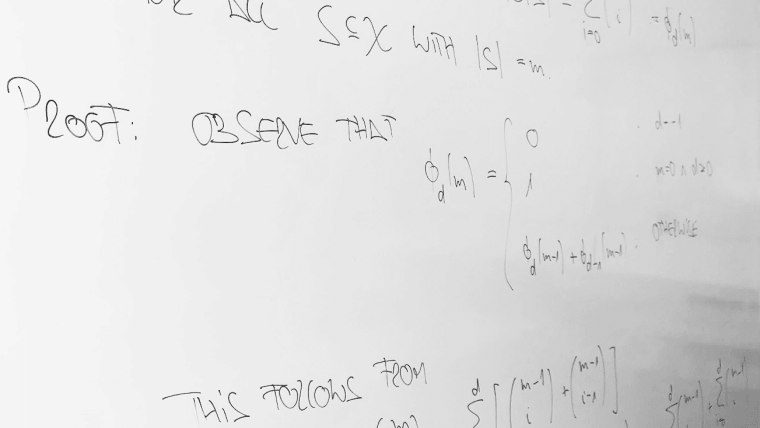 ALL S⊆X WITH |S| = m.
= Σ_{i=0} ( i ) = ϕ_d(m)
PROOF: OBSERVE THAT
ϕ_d(m) = {
0 , d=-1
1 , m=0 ∧ d≥0
ϕ_d(m-1) + ϕ_{d-1}(m-1) , OTHERWISE
THIS FOLLOWS FROM
Σ^d [ (m-1 i) + (m-1 i-1) ]